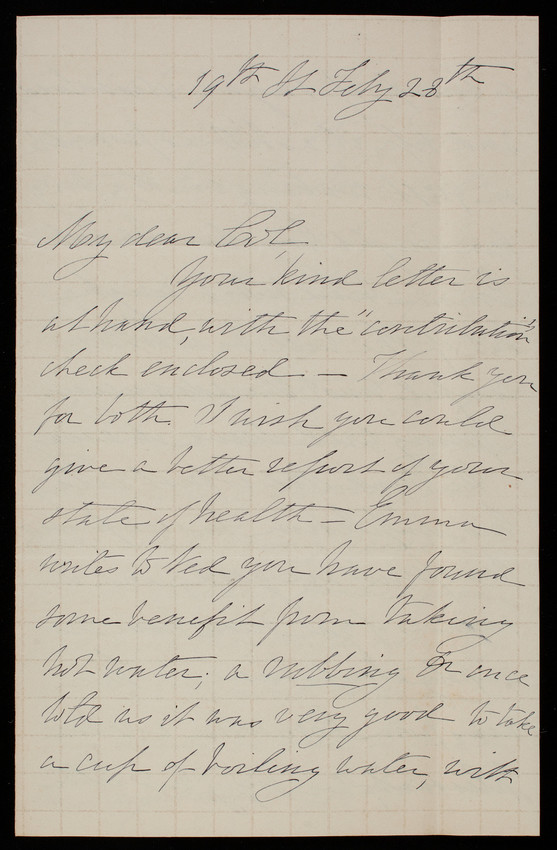 19th St Feby 28th
My dear Col,
Your kind letter is
at hand, with the "contribution"
check enclosed. — Thank you
for both. I wish you could
give a better report of your
state of health — Emma
writes to Ned you have found
some benefit from taking
hot water; a rubbing Dr once
told us it was very good to take
a cup of boiling water, with